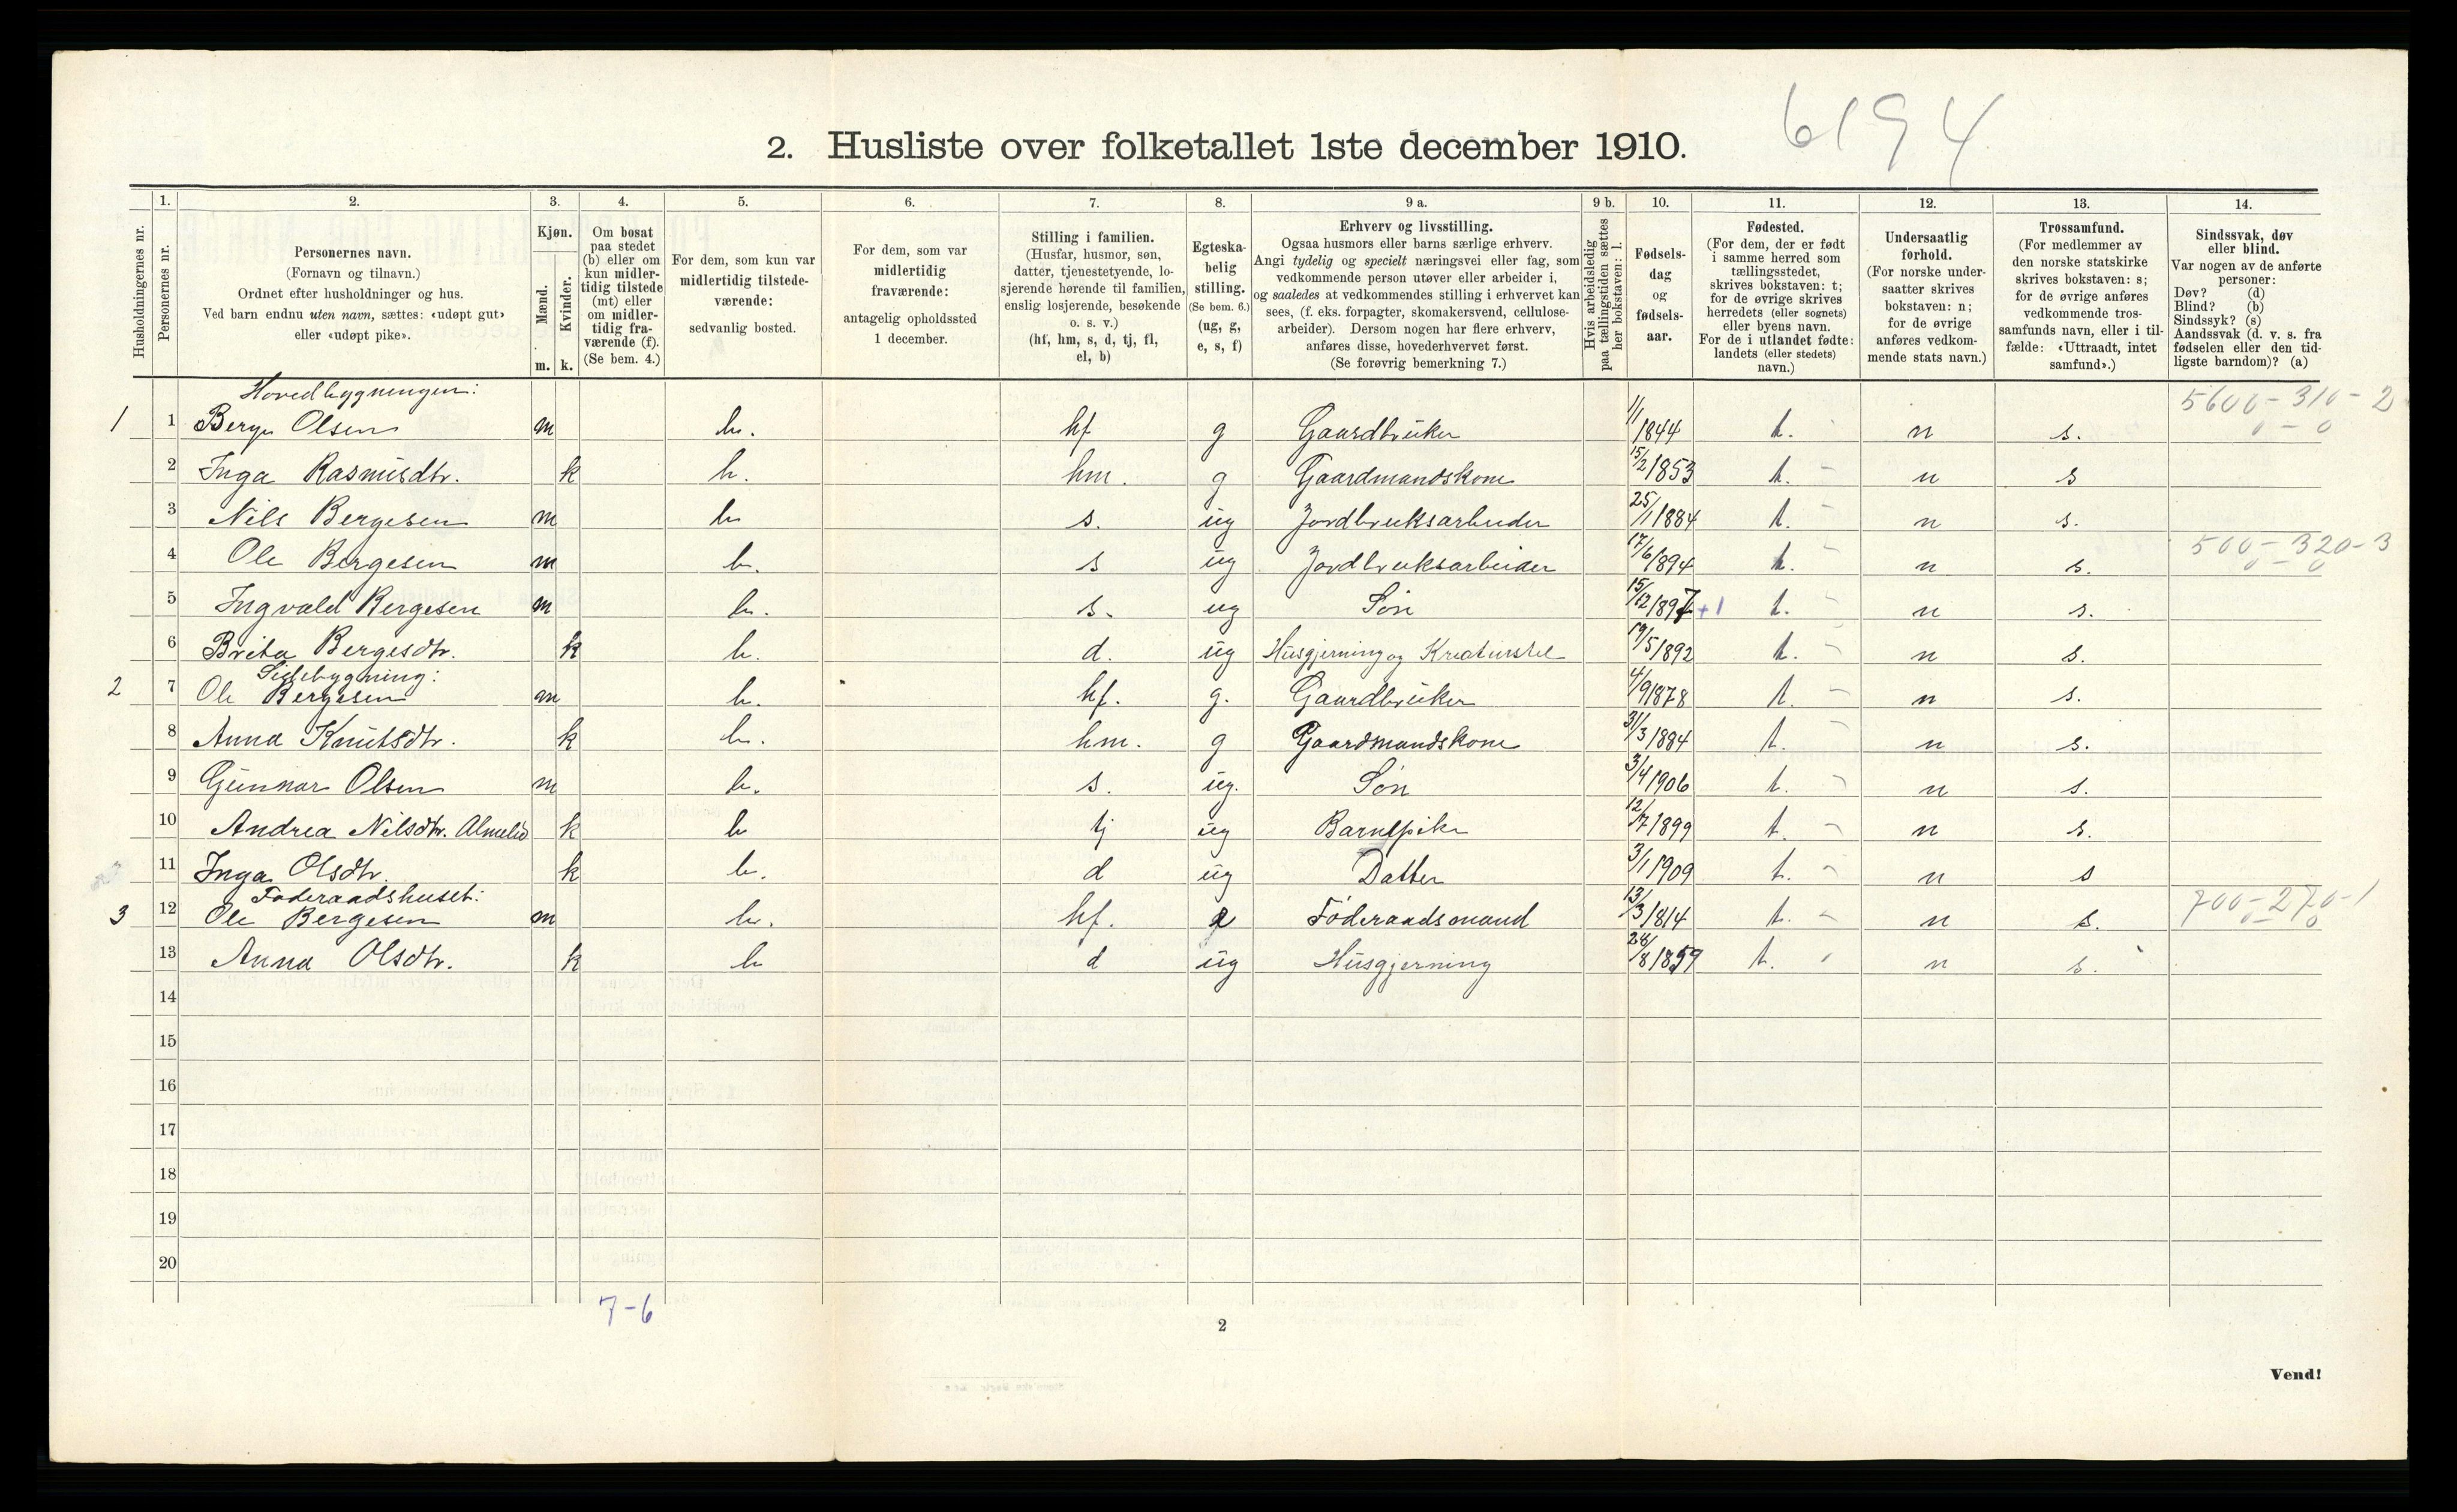 6194
2. Husliste over folketallet 1ste december 1910.
1. 2. 3. 4. 5. 6. 7. 8. 9 a. 9 b. 10. 11. 12. 13. 14.
Husholdningernes nr.
Personernes nr.
Personernes navn.
(Fornavn og tilnavn.)
Ordnet efter husholdninger og hus.
Ved barn endnu uten navn, sættes: «udøpt gut»
eller «udøpt pike».
Kjøn.
Mænd.
Kvinder.
m. k.
Om bosat
paa stedet
(b) eller om
kun midler-
tidig tilstede
(mt) eller
om midler-
tidig fra-
værende (f).
(Se bem. 4.)
For dem, som kun var
midlertidig tilstede-
værende:
sedvanlig bosted.
For dem, som var
midlertidig
fraværende:
antagelig opholdssted
1 december.
Stilling i familien.
(Husfar, husmor, søn,
datter, tjenestetyende, lo-
sjerende hørende til familien,
enslig losjerende, besøkende
o. s. v.)
(hf, hm, s, d, tj, fl,
el, b)
Egteska-
belig
stilling.
(Se bem. 6.)
(ug, g,
e, s, f)
Erhverv og livsstilling.
Ogsaa husmors eller barns særlige erhverv.
Angi tydelig og specielt næringsvei eller fag, som
vedkommende person utøver eller arbeider i,
og saaledes at vedkommendes stilling i erhvervet kan
sees, (f. eks. forpagter, skomakersvend, cellulose-
arbeider). Dersom nogen har flere erhverv,
anføres disse, hovederhvervet først.
(Se forøvrig bemerkning 7.)
Hvis arbeidsledig
paa tællingstiden sættes
her bokstaven: l.
Fødsels-
dag
og
fødsels-
aar.
Fødested.
(For dem, der er født
i samme herred som
tællingsstedet,
skrives bokstaven: t;
for de øvrige skrives
herredets (eller sognets)
eller byens navn.
For de i utlandet fødte:
landets (eller stedets)
navn.)
Undersaatlig
forhold.
(For norske under-
saatter skrives
bokstaven: n;
for de øvrige
anføres vedkom-
mende stats navn.)
Trossamfund.
(For medlemmer av
den norske statskirke
skrives bokstaven: s;
for de øvrige anføres
vedkommende tros-
samfunds navn, eller i til-
fælde: «Uttraadt, intet
samfund».)
Sindssvak, døv
eller blind.
Var nogen av de anførte
personer:
Døv? (d)
Blind? (b)
Sindssyk? (s)
Aandssvak (d. v. s. fra
fødselen eller den tid-
ligste barndom)? (a)
Hovedbygningen: 5600-310-2
1 1 Berge Olsen m b. hf g Gaardbruker 1/1 1844 t. n s. 0-0
2 Inga Rasmusdtr. k b. hm. g Gaardmandskone 15/2 1853 t. n s
3 Nils Bergesen m b s. ug Jordbruksarbeider 25/1 1884 t. n s.
4 Ole Bergesen m b. s ug Jordbruksarbeider 17/6 1894 t. n s. 500-320-3 0-0
5 Ingvald Bergesen m b. s. ug Søn 15/12 1897 +1 t. n s.
6 Brita Bergesdtr. k b. d. ug Husgjerning og Kreaturstel 19/5 1892 t. n s.
Sidebygning:
2 7 Ole Bergesen m b. hf. g. Gaardbruker 4/9 1878 t. n s.
8 Anna Knutsdtr. k b. hm. g Gaardmandskone 31/3 1884 t. n s.
9 Gunnar Olsen m b. s. ug. Søn 3/4 1906 t. n s.
10 Andrea Nilsdtr. Almelid k b tj ug Barnepike 12/7 1899 t. n s.
11 Inga Olsdtr. k b. d ug Datter 3/1 1909 t. n s
Føderaadshuset:
3 12 Ole Bergesen m b. hf. e Føderaadsmand 13/3 1814 t. n s. 700-270-1 0-0
13 Anna Olsdtr. k b d ug Husgjerning 28/8 1859 t. n s.
14
15
16
17
18
19
20
7-6
2
Vend!